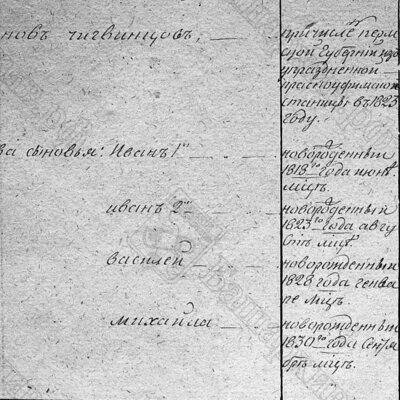 новъ чигвинцовъ,
причисле перм
ской губерніи изо
упраздненной
красноуфимской
станицы въ 1823
году.
ва сыновья: Иванъ 1й
новорожденный
1818го года июня
мцъ.
иванъ 2й
новорожденный
1823го года авгу
стъ мцъ
василей
новорожденный
1828 года генва
ре мцъ
михайла
новорожденный
1830го года Сентя
брь мцъ.